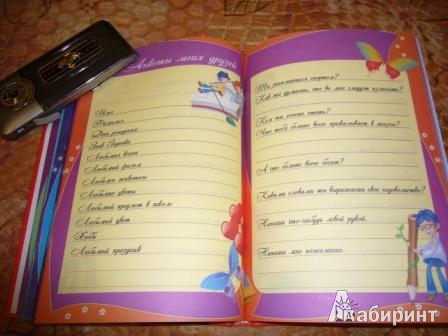 Анкеты моих друзей
Имя
Фамилия
Дата рождения
Знак Зодиака
Любимая книга
Любимый фильм
Любимое животное
Любимые цветы
Любимый предмет в школе
Любимый цвет
Хобби
Любимый праздник
Ты занимаешься спортом?
Как ты думаешь, что во мне следует изменить?
Кем ты хочешь стать?
Что тебя больше всего привлекает в жизни?
А что больше всего бесит?
Какими словами ты выражаешь свое недовольство?
Напиши что-нибудь левой рукой.
Напиши мне пожелание.
Лабиринт